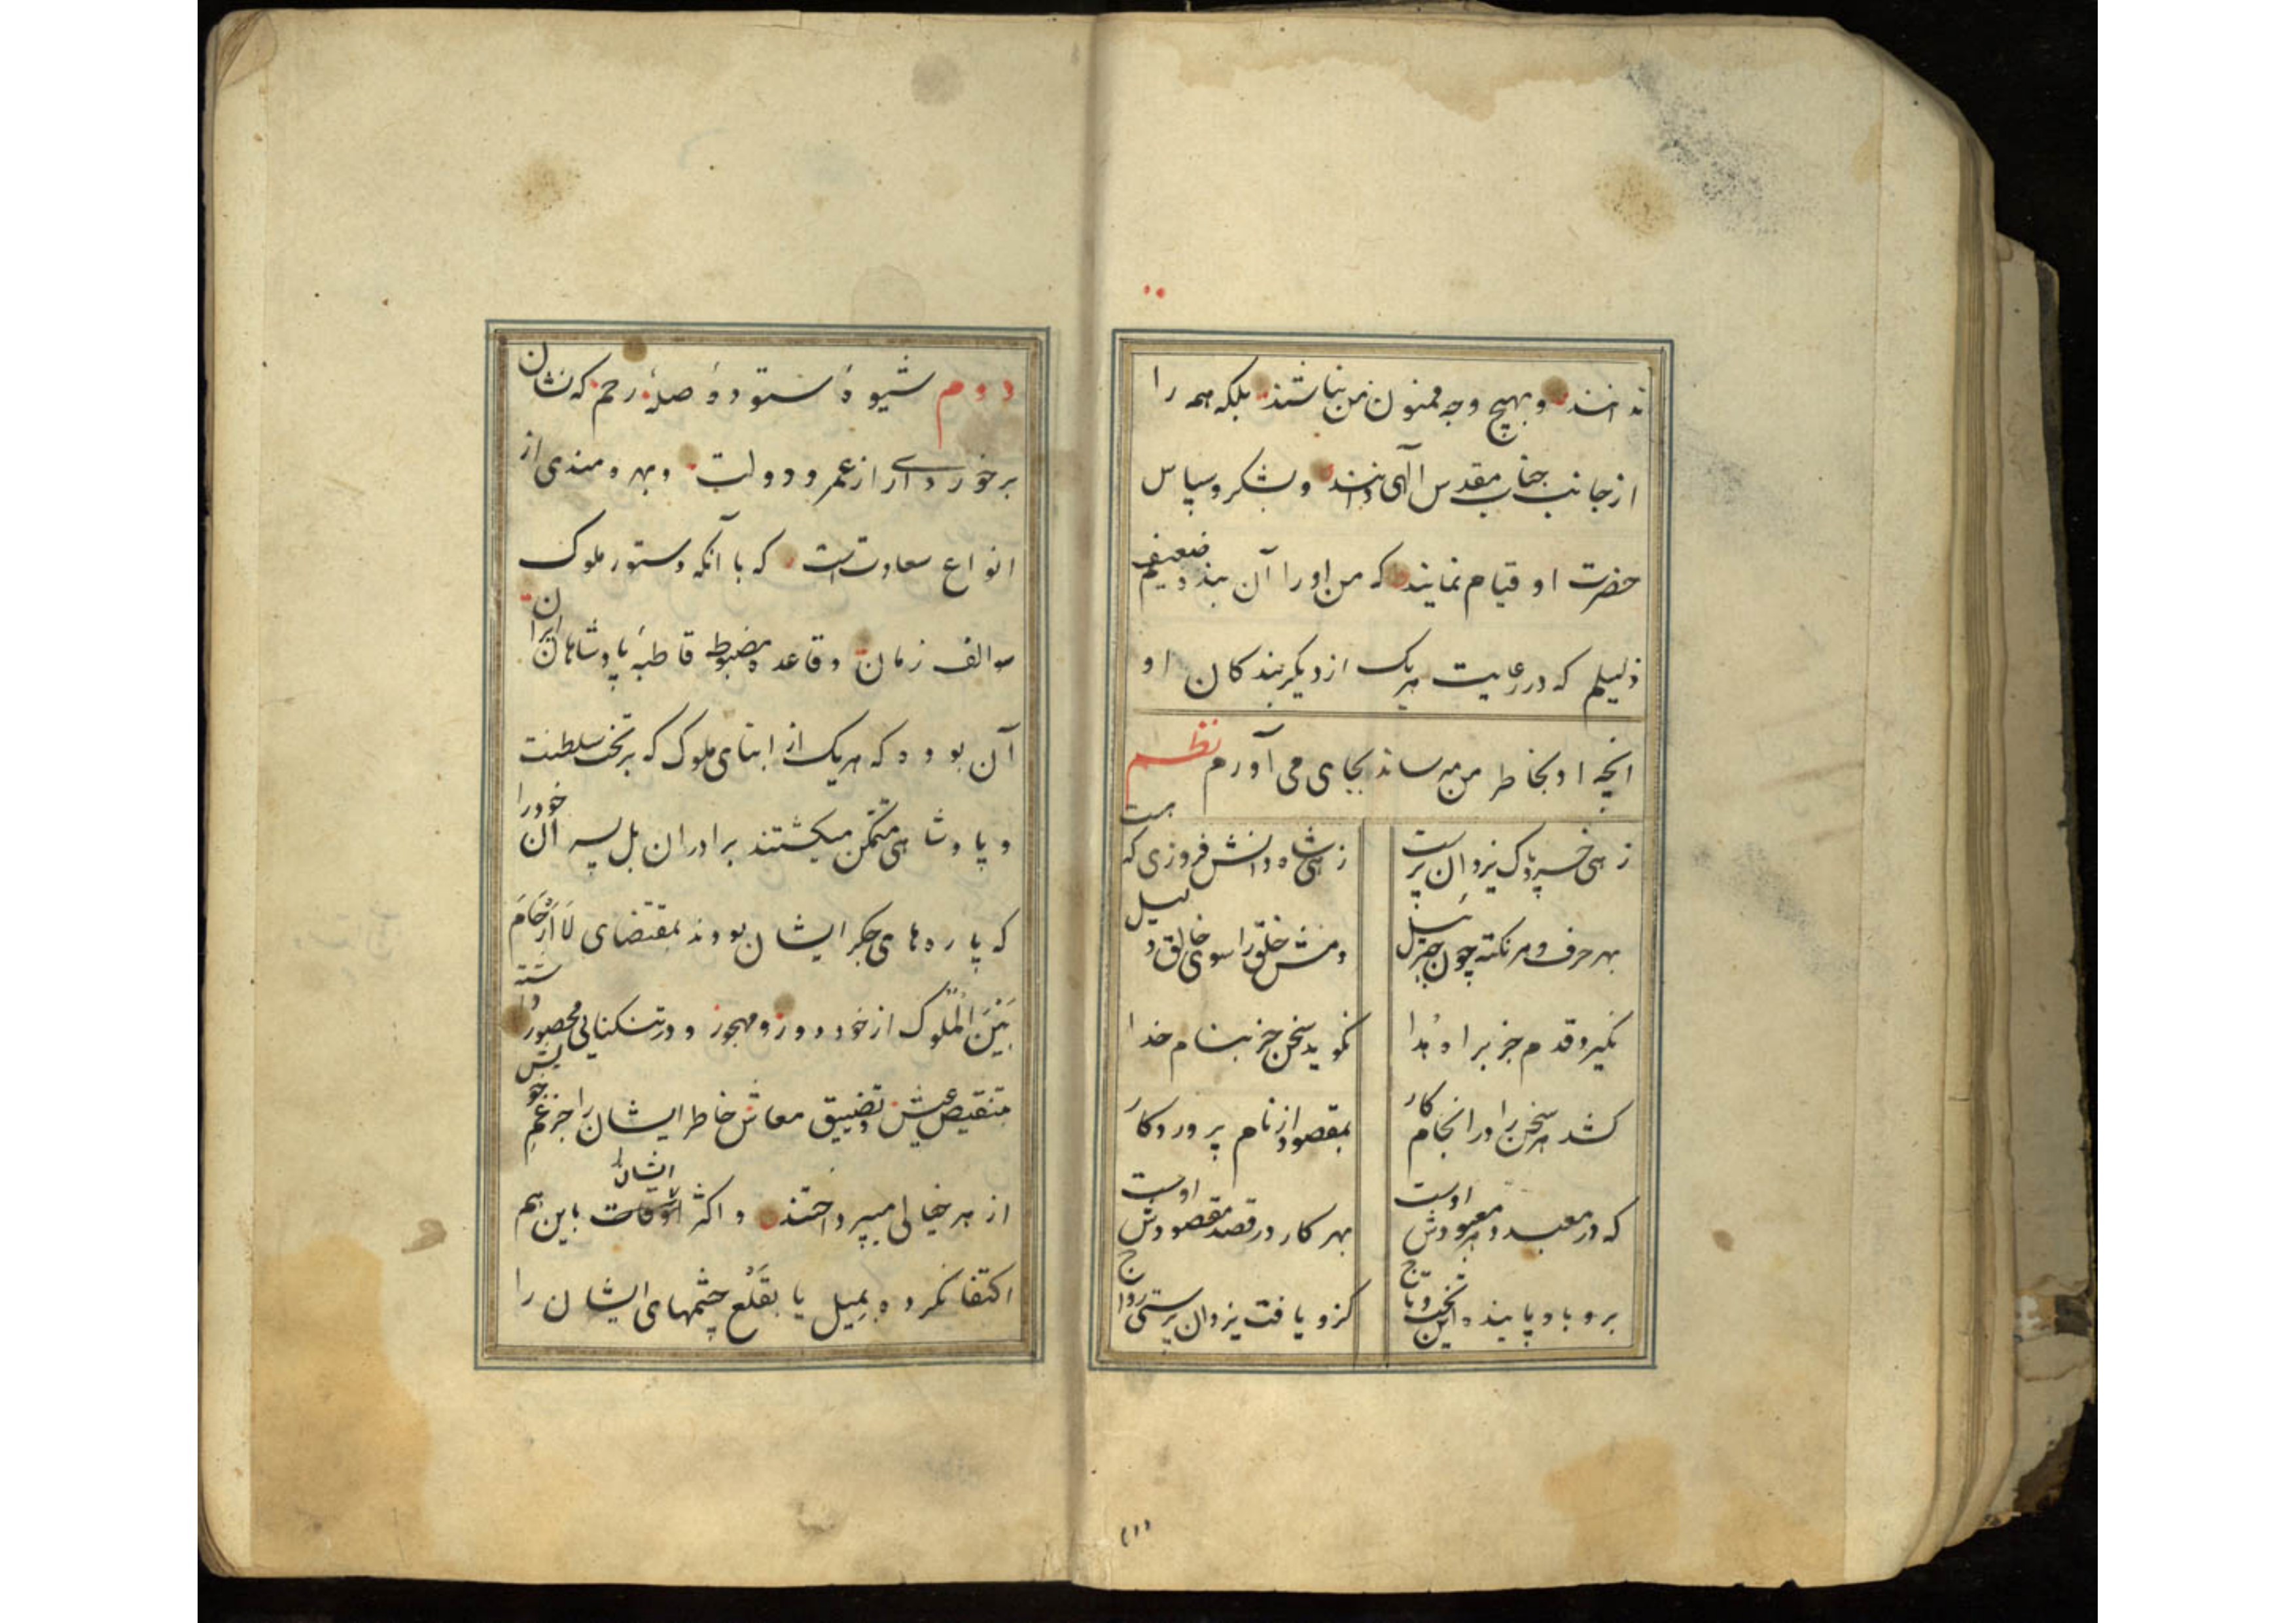 ندانند و بهیچ وجه ممنون من نباشند بلکه همه را
از جانب جناب مقدس آلهی دانند و بشکر و سپاس
حضرت او قیام نمایند که من او را آن بنده ضعیفم
ذلیلم که در رعایت هریک از دیگر بندکان او
انچه او بخاطر من میرساند بجای می آورم نظم
زهی خسرو پاک یزدان پرست زهی شاه دانش فروزی که هست
بهر حرف و هر نکته چون جبرئیل دمش خلق را سوی خالق دلیل
نکیرد قدم جز براه هدا نکوید سخن جز بنام خدا
کشد هر سخن را در انجام کار بمقصود از نام پروردکار
که در معبد و هر معبودش اوست بهر کار در قصد مقصودش اوست
برو باد پاینده این تخت و تاج کزو یافت یزدان پرستی رواج
۱۱
دوم شیوهٔ ستودهٔ صلهٔ رحم که نشان
برخورداری از عمر و دولت و بهرومندی از
انواع سعادت است که با آنکه دستور ملوک
سوالف زمان و قاعده مضبوطه قاطبهٔ پادشاهان ایران
آن بوده که هریک از ابنای ملوک که بر تخت سلطنت
و پادشاهی متمکن میکشتند برادران بل پسران خود را
که پاره های جکر ایشان بودند بمقتضای لَا اَرْحَامَ
بَیْنَ الْمُلُوک از خود دور و مهجور و در تنکنایی محصور داشته
بتنقیص عیش و تضییق معاش خاطر ایشان را جز غم خویش
از هر خیالی میپرداختند و اکثر اوقات ایشان باین هم
اکتفا نکرده بمیل یا بقَلْع چشمهای ایشان را